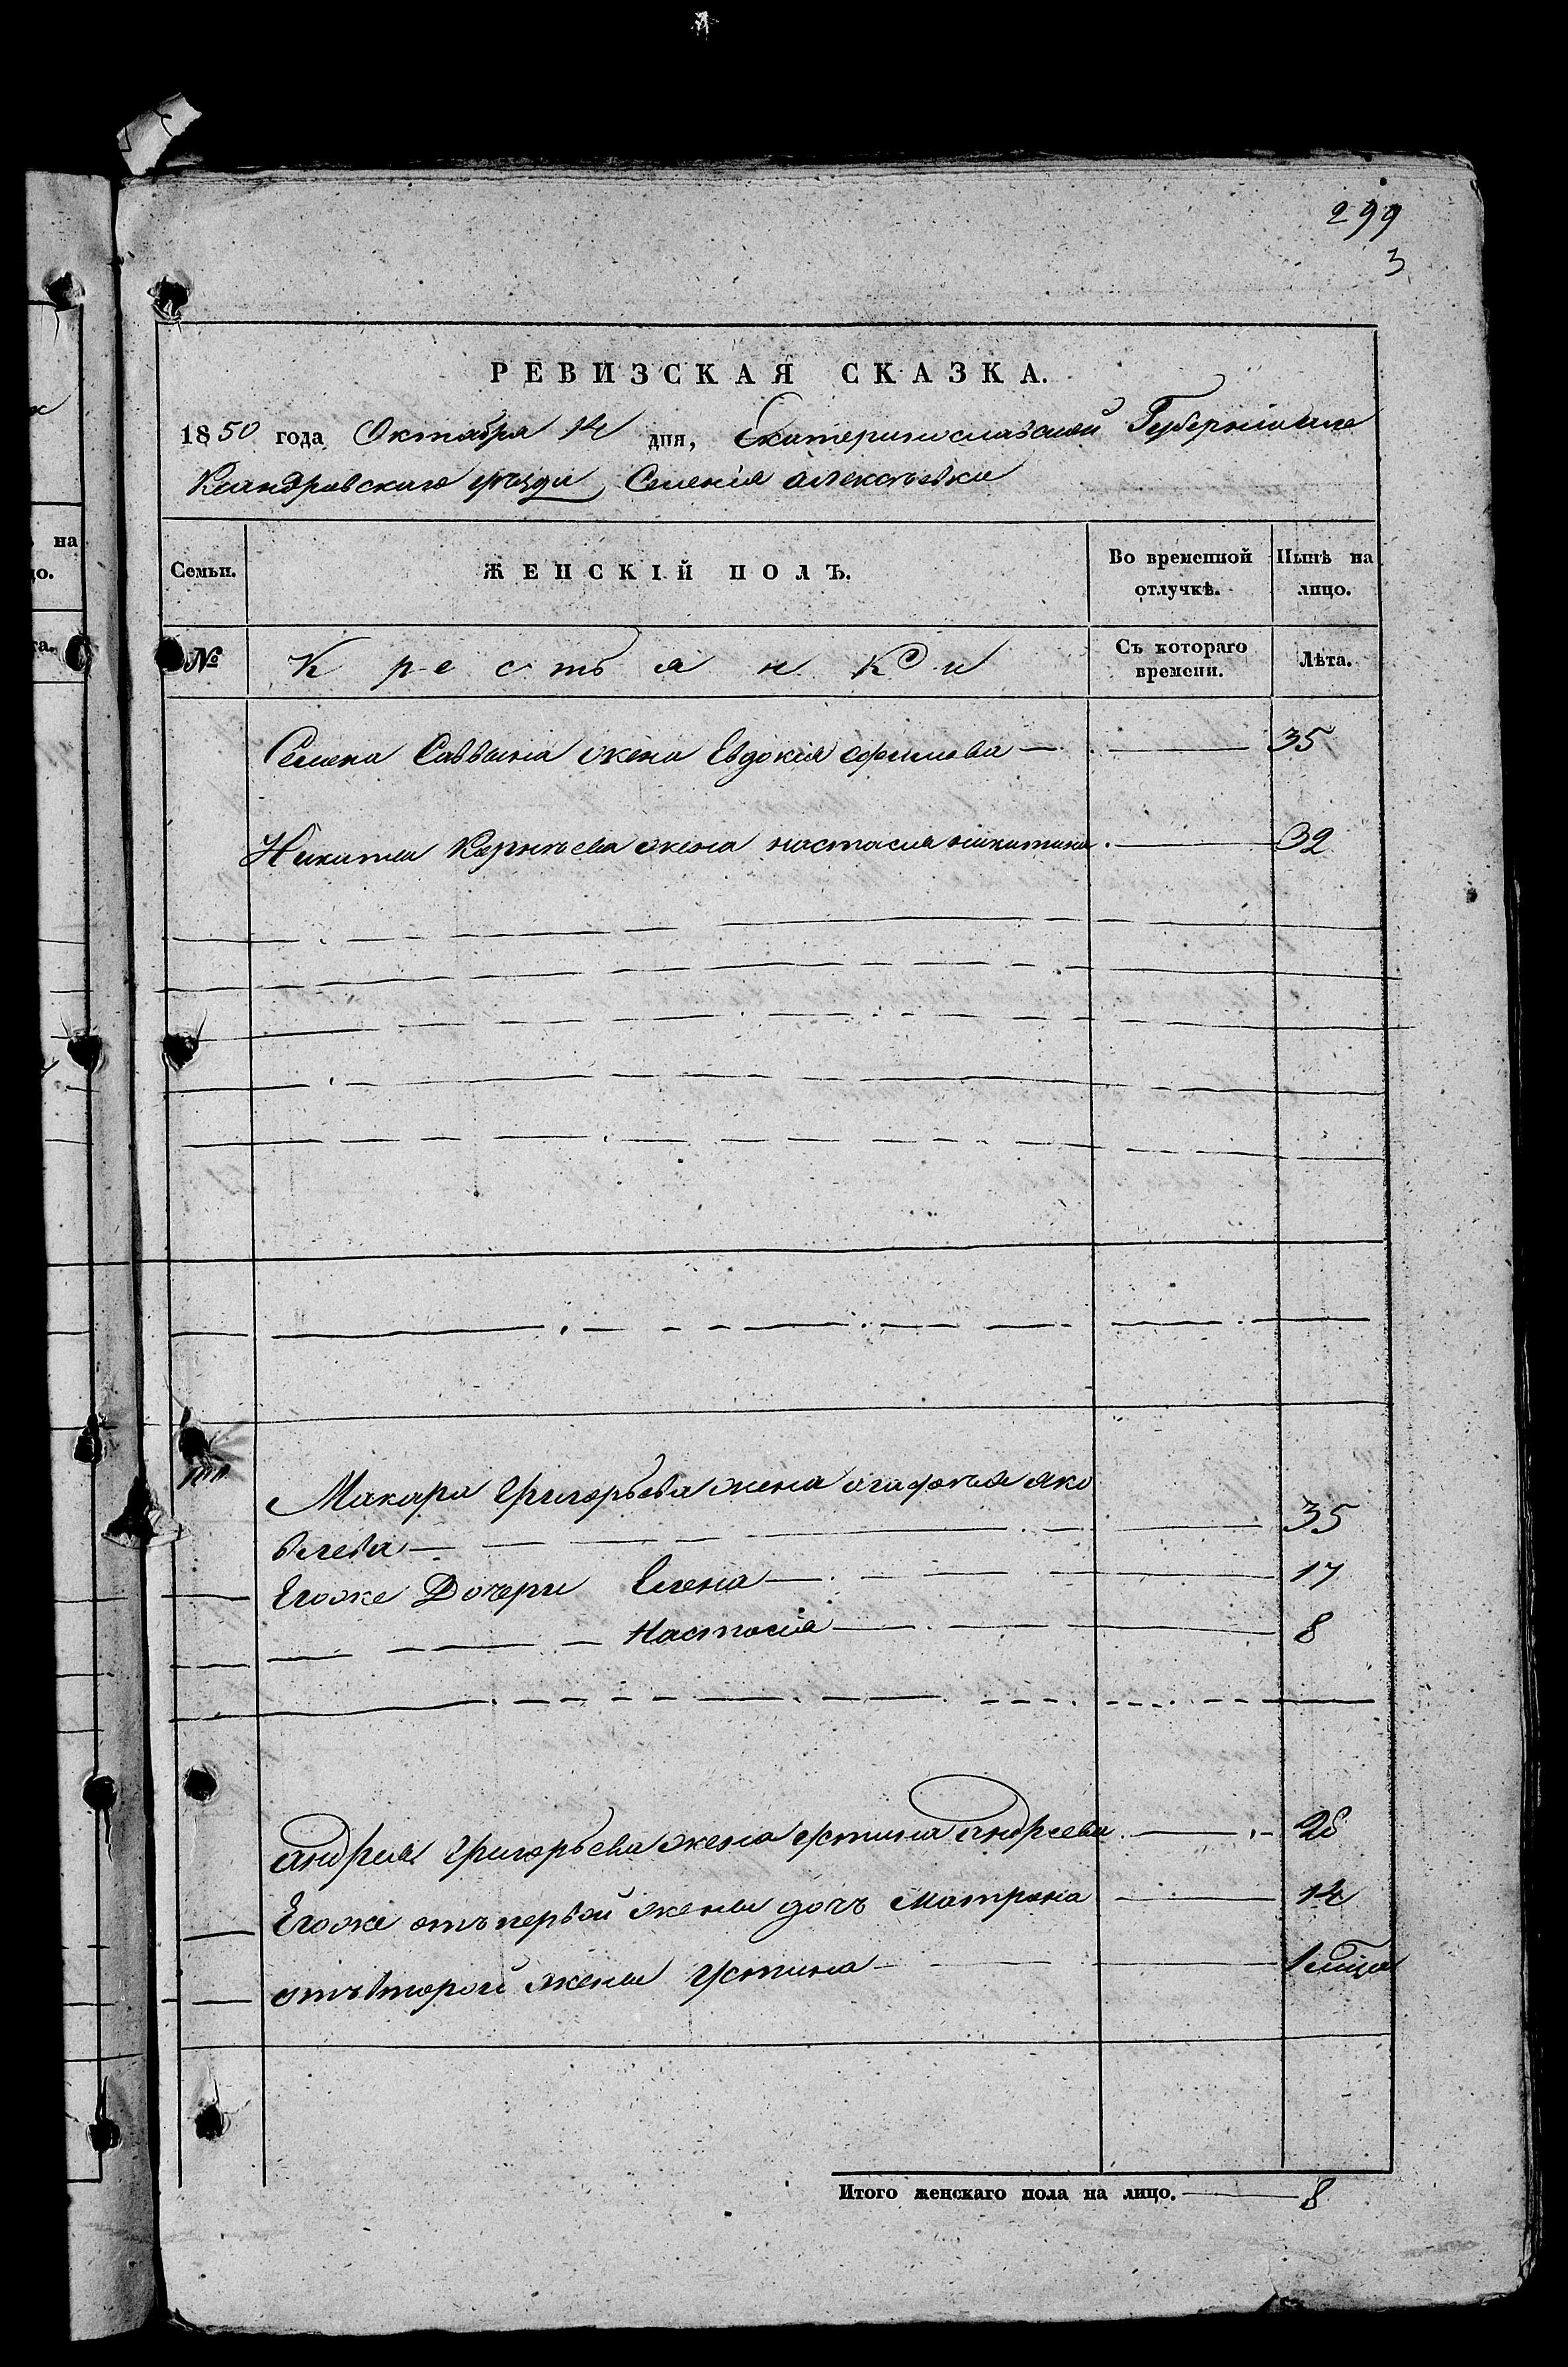 299
3
РЕВИЗСКАЯ СКАЗКА.
1850 года Октября 14 дня, Екатеринославской Губерніи Але
ксандровскаго уезда, Селенія Алексъевки
на
цо.
та.
Семьи. ЖЕНСКІЙ ПОЛЪ. Во временной отлучкѣ. Нынѣ на лицо.
№ Крестьянки Съ котораго времени. Лѣта.
Семена Саввына жена Евдокія Ефимова — 35
Никиты Корнъева жена настасия никитина. 32
Макара Григорьева жена агафия яко
влева — 35
Егоже Дочери Елена — 17
Настасіа — 8
андрия Григорьева жена Устина Андреева 28
Егоже отъ первой жены дочъ Матрона 14
отъ второй жены Устина —
Итого женскаго пола на лицо. — 8